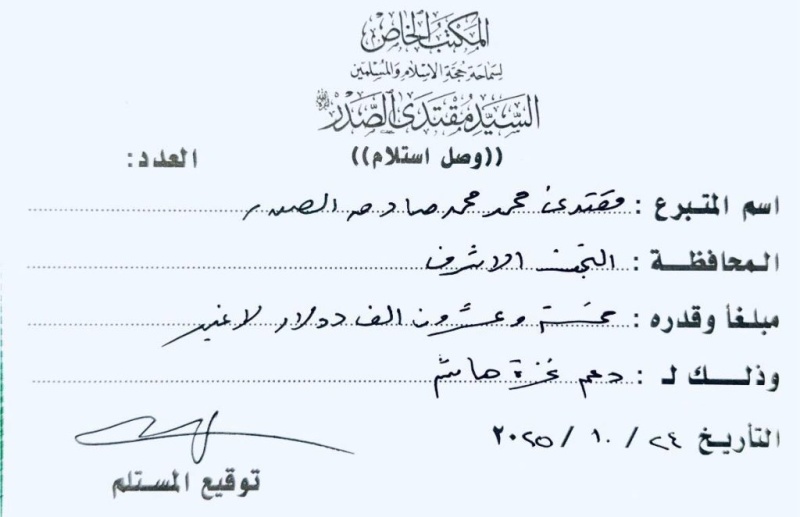 المكتب الخاص
لسماحة حجة الإسلام والمسلمين
السيد مقتدى الصدر
((وصل استلام))
العدد:
اسم المتبرع : مقتدى محمد محمد صادق الصدر
المحافظة : النجف الاشرف
مبلغاً وقدره : خمسة وعشرون الف دولار لا غير
وذلك لـ : دعم غزة هاشم
التأريخ ٢٤ / ١٠ / ٢٠٢٥
توقيع المستلم